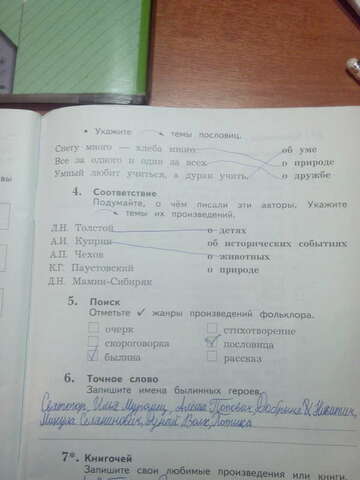 • Укажите темы пословиц.
Свету много — хлеба много об уме
Все за одного и один за всех о природе
Умный любит учиться, а дурак учить о дружбе
4. Соответствие
Подумайте, о чём писали эти авторы. Укажите
темы их произведений.
Л.Н. Толстой о детях
А.И. Куприн об исторических событиях
А.П. Чехов о животных
К.Г. Паустовский о природе
Д.Н. Мамин-Сибиряк
5. Поиск
Отметьте ✓ жанры произведений фольклора.
очерк стихотворение
скороговорка пословица
былина рассказ
6. Точное слово
Запишите имена былинных героев.
Святогор, Илья Муромец, Алёша Попович, Добрыня Никитич,
Микула Селянинович, Волк,
7*. Книгочей
Запишите свои любимые произведения или книги.
вы